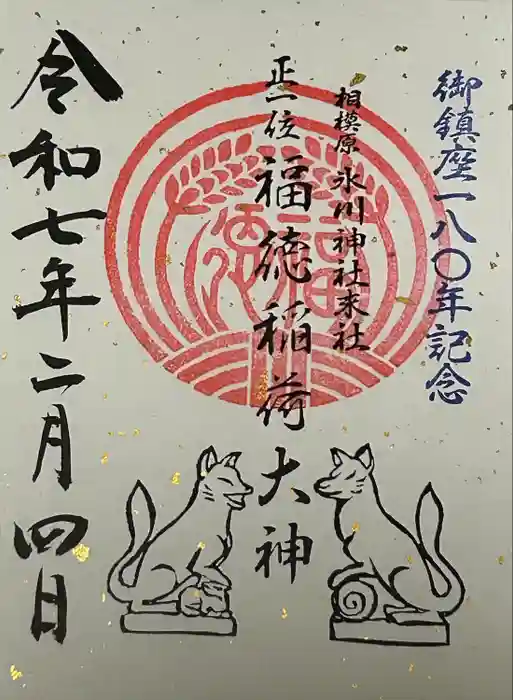 御鎮座一八〇年記念
相模原 氷川神社末社
正一位 福徳稲荷大神
福徳
令和七年二月四日